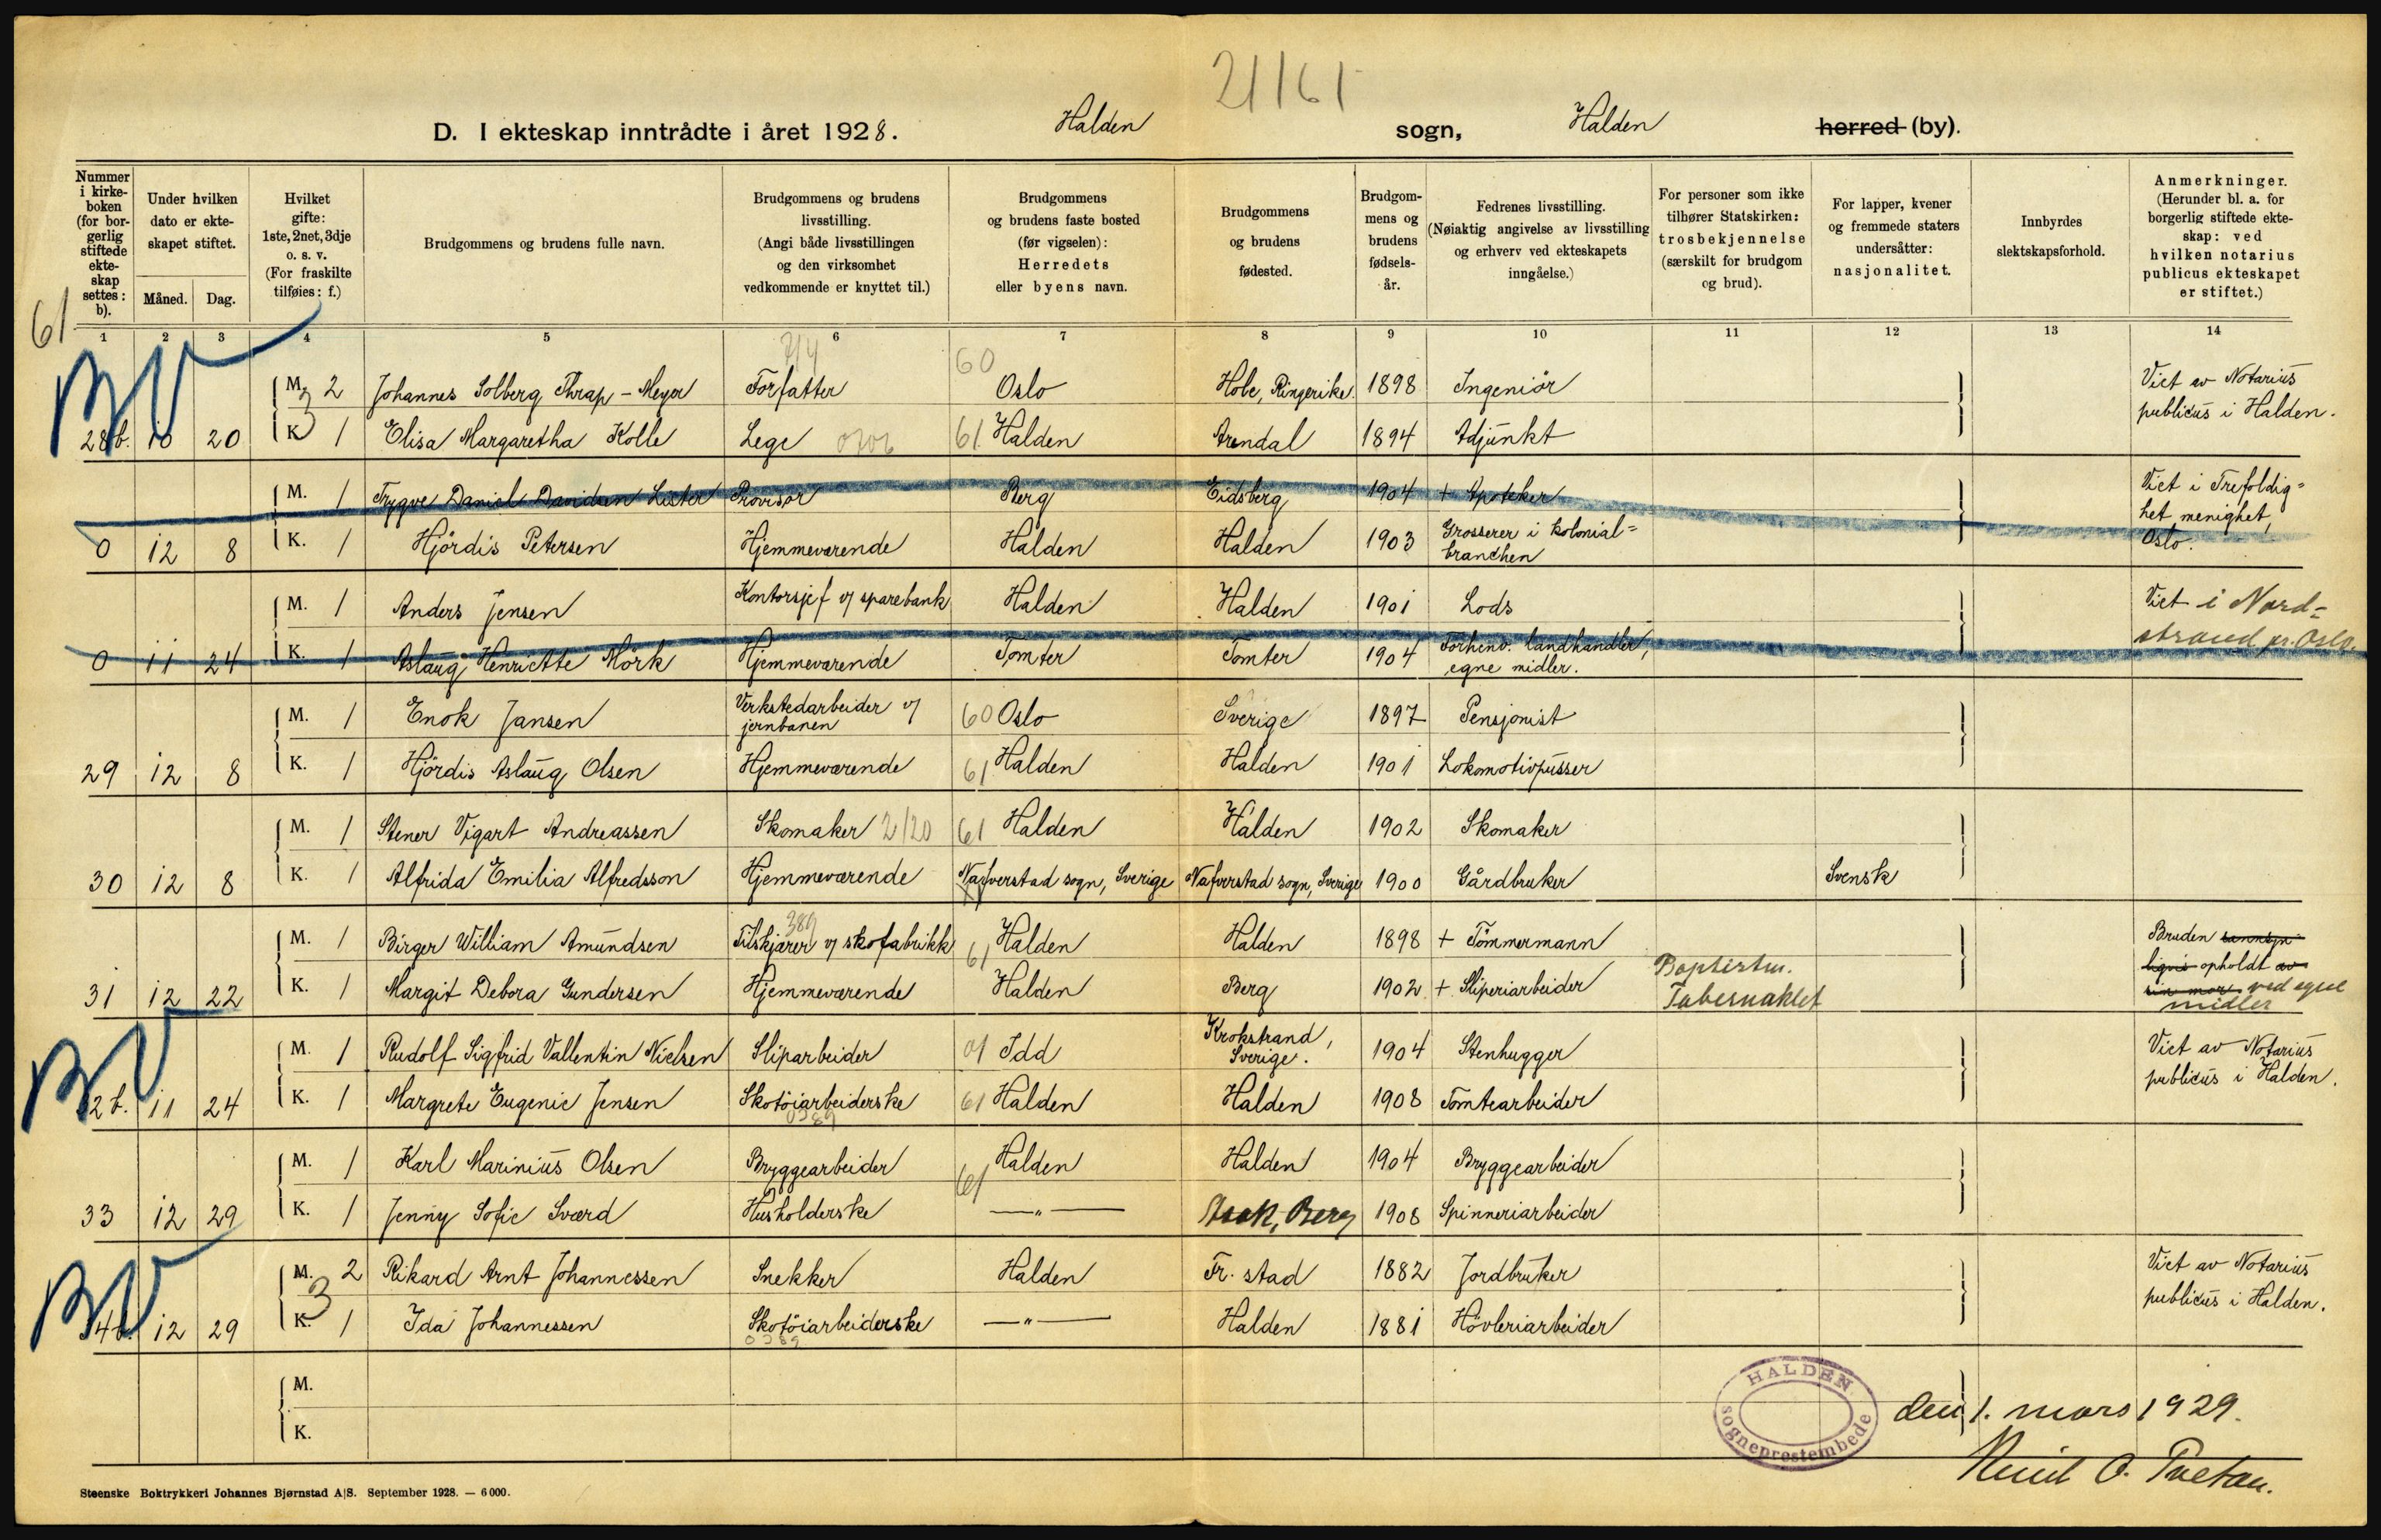 21161
D. I ekteskap inntrådte i året 1928. Halden sogn, Halden herred (by).
Nummer i kirkeboken (for borgerlig stiftede ekteskap settes: b).
Under hvilken dato er ekteskapet stiftet.
Måned. Dag.
Hvilket gifte: 1ste, 2net, 3dje o. s. v. (For fraskilte tilføies: f.)
Brudgommens og brudens fulle navn.
Brudgommens og brudens livsstilling. (Angi både livsstillingen og den virksomhet vedkommende er knyttet til.)
Brudgommens og brudens faste bosted (før vigselen): Herredets eller byens navn.
Brudgommens og brudens fødested.
Brudgommens og brudens fødselsår.
Fedrenes livsstilling. (Nøiaktig angivelse av livsstilling og erhverv ved ekteskapets inngåelse.)
For personer som ikke tilhører Statskirken: trosbekjennelse (særskilt for brudgom og brud).
For lapper, kvener og fremmede staters undersåtter: nasjonalitet.
Innbyrdes slektskapsforhold.
Anmerkninger. (Herunder bl. a. for borgerlig stiftede ekteskap: ved hvilken notarius publicus ekteskapet er stiftet.)
61
1 2 3 4 5 6 7 8 9 10 11 12 13 14
BV
M. 2 Johannes Solberg Thrap-Meyer Forfatter 214 60 Oslo Hole, Ringerike. 1898 Ingeniör Viet av Notarius
3
28b. 10 20 K. 1 Elisa Margaretha Kolle Lege 0706 61 Halden Arendal 1894 Adjunkt publicus i Halden.
M. 1 Trygve Daniel Davidsen Lister Provisor Berg Eidsberg 1904 + Apoteker Viet i Trefoldig=
het menighet,
0 12 8 K. 1 Hjördis Petersen Hjemmeværende Halden Halden 1903 Grosserer i kolonial=
branchen Oslo.
M. 1 Anders Jensen Kontorsjef v/ sparebank Halden Halden 1901 Lods Viet i Nord=
strand pr. Oslo.
0 11 24 K. 1 Aslaug Henriette Mörk Hjemmeværende Tomter Tomter 1904 Forhenv. landhandler,
egne midler.
M. 1 Enok Jansen Verkstedarbeider v/
jernbanen 60 Oslo Sverige 1897 Pensjonist
29 12 8 K. 1 Hjördis Aslaug Olsen Hjemmeværende 61 Halden Halden 1901 Lokomotivpusser
M. 1 Stener Vigart Andreassen Skomaker 2/20 61 Halden Halden 1902 Skomaker
30 12 8 K. 1 Alfrida Emilia Alfredsson Hjemmeværende Nafverstad sogn, Sverige Nafverstad sogn, Sverige 1900 Gårdbruker Svensk
M. 1 Birger William Amundsen Tilskjærer v/ skofabrikk 389 61 Halden Halden 1898 + Tömmermann Bruden sannsyn
ligvis opholdt av
31 12 22 K. 1 Margit Debora Gundersen Hjemmeværende Halden Berg 1902 + Sliperiarbeider Baptistm.
Tabernaklet
sin mor, ved egne
midler
BV
M. 1 Rudolf Sigfrid Vallentin Nielsen Sliparbeider 01 Idd Krokstrand,
Sverige. 1904 Stenhugger Viet av Notarius
2b. 11 24 K. 1 Margrete Eugenie Jensen Skotöiarbeiderske 0389 61 Halden Halden 1908 Tomtearbeider publicus i Halden.
M. 1 Karl Marinius Olsen Bryggearbeider 61 Halden Halden 1904 Bryggearbeider
33 12 29 K. 1 Jenny Sofie Sværd Husholderske —"— Asak, Berg 1908 Spinneriarbeider
BV
M. 2 Rikard Arnt Johannessen Snekker Halden Fr. stad 1882 Jordbruker Viet av Notarius
3
34b. 12 29 K. 1 Ida Johannessen Skotöiarbeiderske 0389 —"— Halden 1881 Hövleriarbeider publicus i Halden.
M.
K.
HALDEN sogneprestembede
den 1. mars 1929.
Steenske Boktrykkeri Johannes Bjørnstad A/S. September 1928. — 6000.